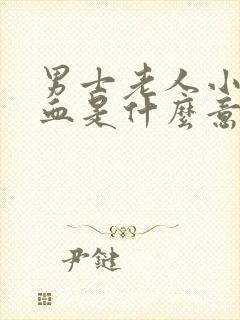 男士老人小
血是什麼意
尹鍵